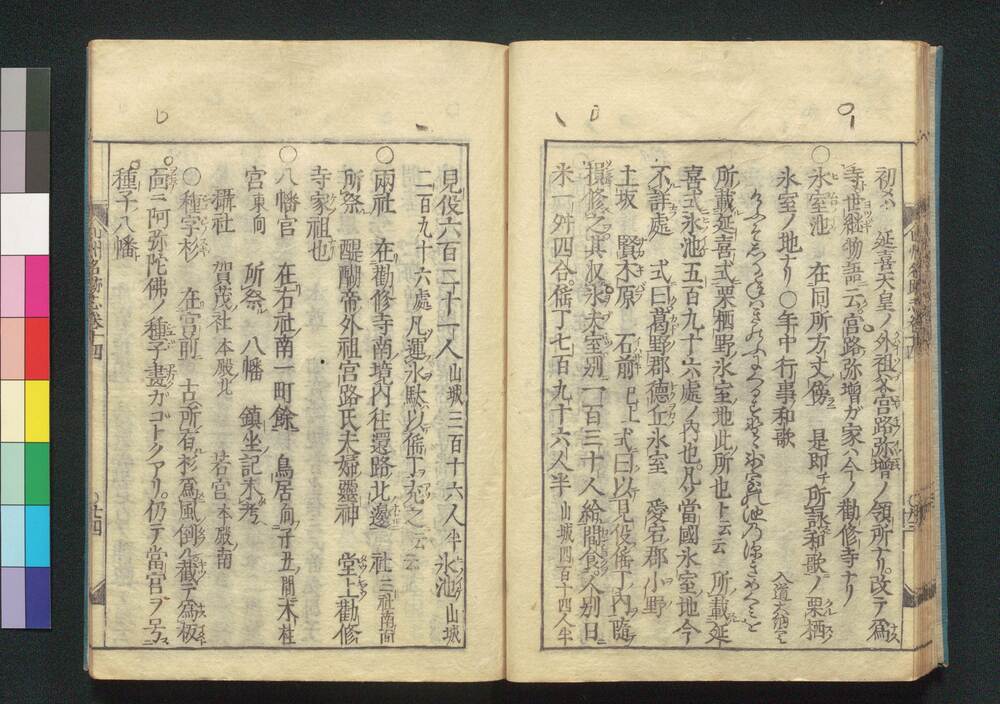 初ハ 延喜天皇ノ外祖父宮路弥増ノ領所ナリ改テ為
寺世継物語ニ云宮路弥増ガ家ハ今ノ勧修寺ナリ
〇氷室池 在同所方丈傍 是即チ所詠和歌ノ栗栖
氷室ノ地ナリ〇年中行事和歌
入道大納言
所載延喜式栗栖野氷室地此所也ト云云 所載延
喜式氷池五百九十六處ノ内也凡ソ當國氷室地今
不詳處 式曰葛野郡徳丘氷室 愛宕郡小野
土坂 賢木原 石前已上 式曰以見役徭丁内随
損修之其収氷夫室別一百三十人給間食人別日
米一舛四合徭丁七百九十六人半山城四百十四人半
見役六百二十一人山城三百十六人半氷池山城
二百九十六處凡運氷駄以徭丁充之云云
〇兩社 在勧修寺南境内往還路北邊 社三社南面
所祭 醍醐帝外祖宮路氏夫婦靈神 堂上勧修
寺家祖也
〇八幡宮 在右社南一町餘 鳥居向子丑間木柱
宮東向 所祭 八幡 鎮坐記未考
攝社 賀茂社本殿北 若宮本殿南
〇種字杉 在宮前 古所有杉為風倒截テ為板
面ニ阿弥陀佛ノ種子畫ガゴトクアリ仍テ當宮ヲ号
種子八幡